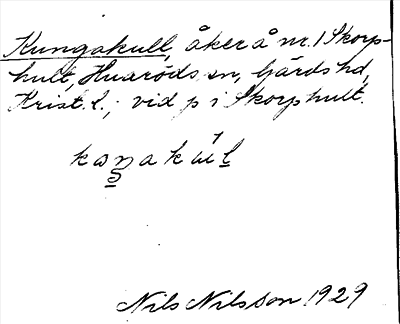 Kungakull, åker å nr. 1 Skorp-
hult, Huaröds sn, Gärds hd,
Krist. l.; vid p i Skorphult.
Nils Nilsson 1929